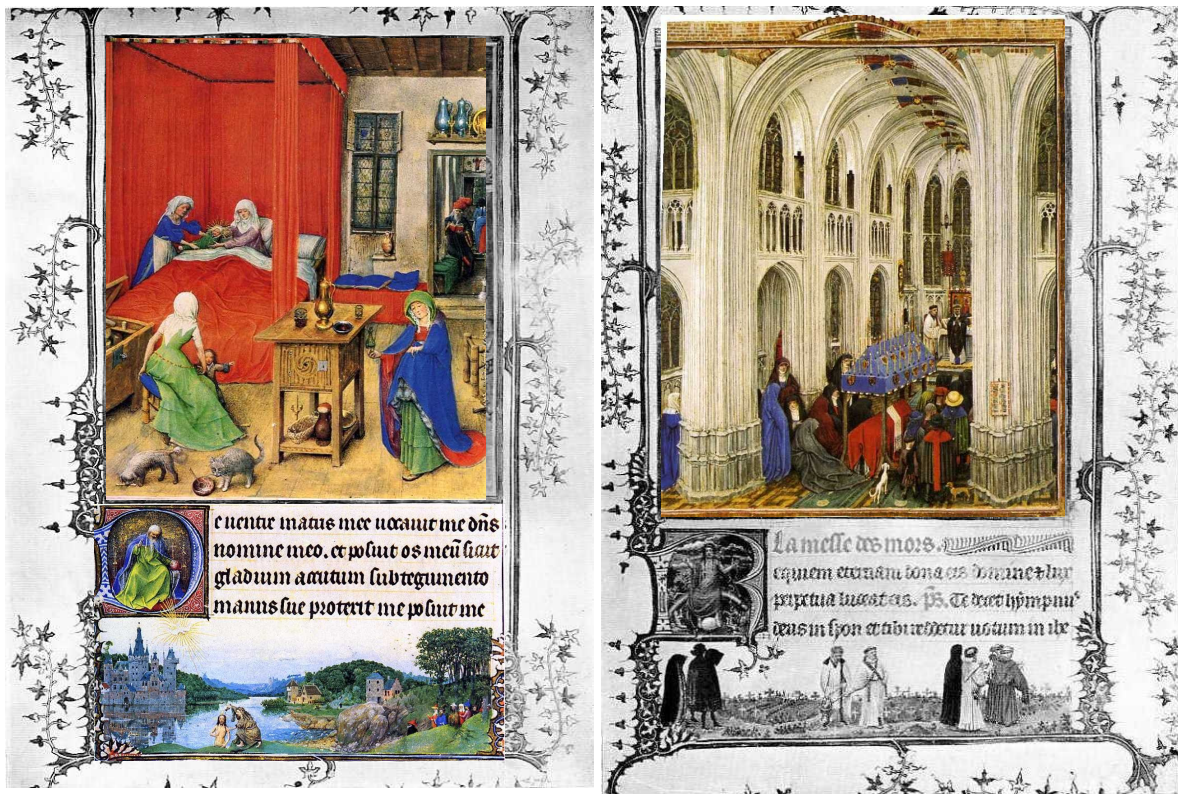 De uentre matris mee uocauit me dñs
nomine meo. et posuit os meũ sicut
gladium acutum sub tegumento
manus sue protexit me posuit me
La messe des mors.
Requiem eternam dona eis domine ⁊ lux
perpetua luceat eis. ps̃. Te decet hympnus
deus in syon et tibi reddetur uotum in ihe